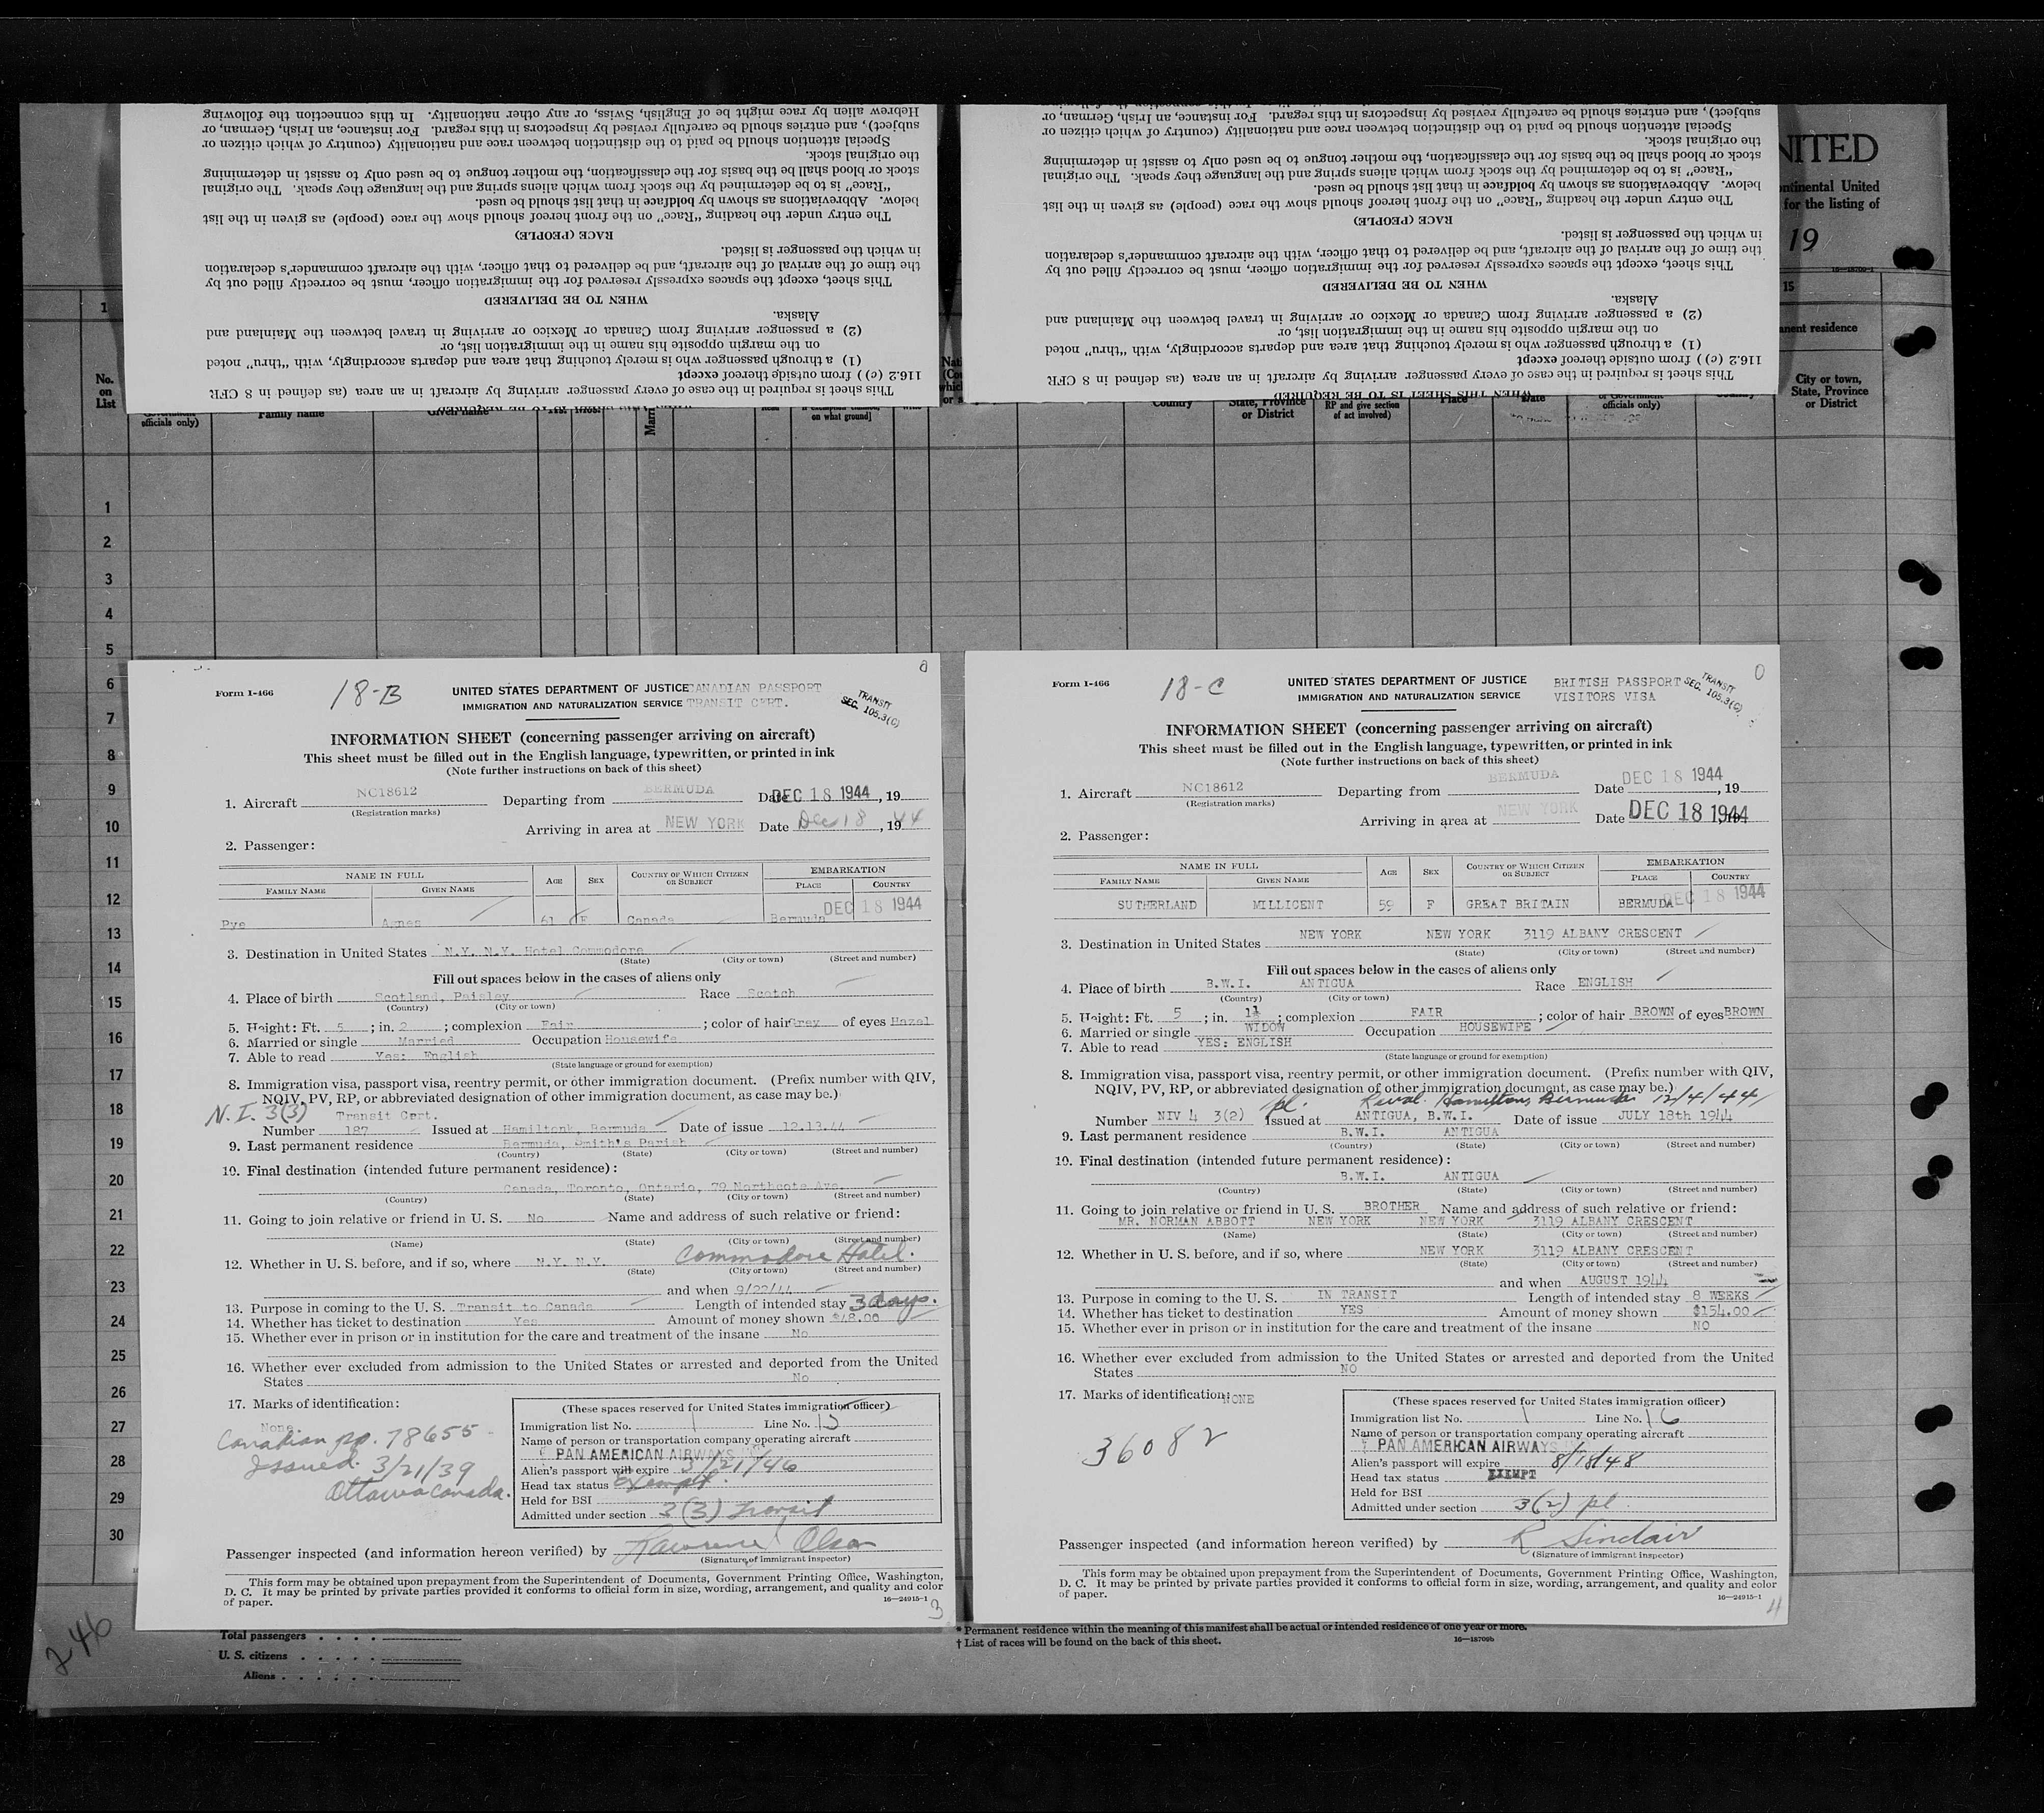 Hebrew alien by race might be of English, Swiss, or any other nationality. In this connection the following
subject), and entries should be carefully revised by inspectors in this regard. For instance, an Irish, German, or
Special attention should be paid to the distinction between race and nationality (country of which citizen or
the original stock.
stock or blood shall be the basis for the classification, the mother tongue to be used only to assist in determining
"Race" is to be determined by the stock from which aliens spring and the language they speak. The original
below. Abbreviations as shown by boldface in that list should be used.
The entry under the heading "Race" on the front hereof should show the race (people) as given in the list
RACE (PEOPLE)
in which the passenger is listed.
the time of the arrival of the aircraft, and be delivered to that officer, with the aircraft commander's declaration
This sheet, except the spaces expressly reserved for the immigration officer, must be correctly filled out by
WHEN TO BE DELIVERED
Alaska.
(2) a passenger arriving from Canada or Mexico or arriving in travel between the Mainland and
on the margin opposite his name in the immigration list, or
(1) a through passenger who is merely touching that area and departs accordingly, with "thru" noted
116.2 (c) ) from outside thereof except
This sheet is required in the case of every passenger arriving by aircraft in an area (as defined in 8 CFR
subject), and entries should be carefully revised by inspectors in this regard. For instance, an Irish, German, or
Special attention should be paid to the distinction between race and nationality (country of which citizen or
the original stock.
stock or blood shall be the basis for the classification, the mother tongue to be used only to assist in determining
"Race" is to be determined by the stock from which aliens spring and the language they speak. The original
below. Abbreviations as shown by boldface in that list should be used.
The entry under the heading "Race" on the front hereof should show the race (people) as given in the list
RACE (PEOPLE)
in which the passenger is listed.
the time of the arrival of the aircraft, and be delivered to that officer, with the aircraft commander's declaration
This sheet, except the spaces expressly reserved for the immigration officer, must be correctly filled out by
WHEN TO BE DELIVERED
Alaska.
(2) a passenger arriving from Canada or Mexico or arriving in travel between the Mainland and
on the margin opposite his name in the immigration list, or
(1) a through passenger who is merely touching that area and departs accordingly, with "thru" noted
116.2 (c) ) from outside thereof except
This sheet is required in the case of every passenger arriving by aircraft in an area (as defined in 8 CFR
WHEN THIS SHEET IS TO BE REQUIRED
NITED
ontinental United
for the listing of
19
15
nent residence
City or town,
State, Province
or District
No.
on
List
officials only)
Family name
on what ground]
Country
State, Province
or District
RP and give section
of act involved)
Place
Date
officials only)
1
2
3
4
5
6
7
8
9
10
11
12
13
14
15
16
17
18
19
20
21
22
23
24
25
26
27
28
29
30
Form I-466
18-B
UNITED STATES DEPARTMENT OF JUSTICE CANADIAN PASSPORT
IMMIGRATION AND NATURALIZATION SERVICE TRANSIT CERT.
TRANSIT
SEC. 105.3(C)
INFORMATION SHEET (concerning passenger arriving on aircraft)
This sheet must be filled out in the English language, typewritten, or printed in ink
(Note further instructions on back of this sheet)
1. Aircraft NC18612 Departing from BERMUDA Date DEC 18 1944, 19
(Registration marks)
Arriving in area at NEW YORK Date Dec 18, 1944
2. Passenger:
NAME IN FULL
FAMILY NAME
GIVEN NAME
AGE
SEX
COUNTRY OF WHICH CITIZEN OR SUBJECT
EMBARKATION
PLACE
COUNTRY
DEC 18 1944
Pye Agnes 61 F Canada Bermuda
3. Destination in United States N.Y. N.Y. Hotel Commodore
(State) (City or town) (Street and number)
Fill out spaces below in the cases of aliens only
4. Place of birth Scotland, Paisley Race Scotch
(Country) (City or town)
5. Height: Ft. 5 ; in. 2 ; complexion Fair ; color of hair Grey of eyes Hazel
6. Married or single Married Occupation Housewife
7. Able to read Yes: English
(State language or ground for exemption)
8. Immigration visa, passport visa, reentry permit, or other immigration document. (Prefix number with QIV,
NQIV, PV, RP, or abbreviated designation of other immigration document, as case may be.)
N.I. 3(3) Transit Cert.
Number 187 Issued at Hamiltonk, Bermuda Date of issue 12.13.44
9. Last permanent residence Bermuda, Smith's Parish
(Country) (State) (City or town) (Street and number)
10. Final destination (intended future permanent residence):
Canada, Toronto, Ontario, 79 Northcote Ave.
(Country) (State) (City or town) (Street and number)
11. Going to join relative or friend in U. S. No Name and address of such relative or friend:
(Name) (State) (City or town) (Street and number)
Commodore Hotel.
12. Whether in U. S. before, and if so, where N.Y. N.Y.
(State) (City or town) (Street and number)
and when 9/22/44
13. Purpose in coming to the U. S. Transit to Canada Length of intended stay 3 days.
14. Whether has ticket to destination Yes Amount of money shown $48.00
15. Whether ever in prison or in institution for the care and treatment of the insane No
16. Whether ever excluded from admission to the United States or arrested and deported from the United
States No
17. Marks of identification:
None
Canadian pp. 78655
Issued 3/21/39
Ottawa Canada.
(These spaces reserved for United States immigration officer)
Immigration list No. 1 Line No. 15
Name of person or transportation company operating aircraft
PAN AMERICAN AIRWAYS INC.
Alien's passport will expire 3/21/46
Head tax status Exempt.
Held for BSI
Admitted under section 3(3) Transit
Passenger inspected (and information hereon verified) by Lawrence Olson
(Signature of immigrant inspector)
This form may be obtained upon prepayment from the Superintendent of Documents, Government Printing Office, Washington,
D. C. It may be printed by private parties provided it conforms to official form in size, wording, arrangement, and quality and color
of paper.
16—24915-1
3
Form I-466
18-C
UNITED STATES DEPARTMENT OF JUSTICE BRITISH PASSPORT
IMMIGRATION AND NATURALIZATION SERVICE VISITORS VISA
TRANSIT
SEC. 105.3(C)
INFORMATION SHEET (concerning passenger arriving on aircraft)
This sheet must be filled out in the English language, typewritten, or printed in ink
(Note further instructions on back of this sheet)
1. Aircraft NC18612 Departing from BERMUDA Date DEC 18 1944, 19
(Registration marks)
Arriving in area at NEW YORK Date DEC 18 1944
2. Passenger:
NAME IN FULL
FAMILY NAME
GIVEN NAME
AGE
SEX
COUNTRY OF WHICH CITIZEN OR SUBJECT
EMBARKATION
PLACE
COUNTRY
SUTHERLAND MILLICENT 59 F GREAT BRITAIN BERMUDA DEC 18 1944
3. Destination in United States NEW YORK NEW YORK 3119 ALBANY CRESCENT
(State) (City or town) (Street and number)
Fill out spaces below in the cases of aliens only
4. Place of birth B.W.I. ANTIGUA Race ENGLISH
(Country) (City or town)
5. Height: Ft. 5 ; in. ; complexion FAIR ; color of hair BROWN of eyes BROWN
6. Married or single WIDOW Occupation HOUSEWIFE
7. Able to read YES: ENGLISH
(State language or ground for exemption)
8. Immigration visa, passport visa, reentry permit, or other immigration document. (Prefix number with QIV,
NQIV, PV, RP, or abbreviated designation of other immigration document, as case may be.)
pl. Reval. Hamilton, Bermuda 12/4/44
Number NIV 4 3(2) Issued at ANTIGUA, B.W.I. Date of issue JULY 18th 1944
9. Last permanent residence B.W.I. ANTIGUA
(Country) (State) (City or town) (Street and number)
10. Final destination (intended future permanent residence):
B.W.I. ANTIGUA
(Country) (State) (City or town) (Street and number)
11. Going to join relative or friend in U. S. BROTHER Name and address of such relative or friend:
MR. NORMAN ABBOTT NEW YORK NEW YORK 3119 ALBANY CRESCENT
(Name) (State) (City or town) (Street and number)
12. Whether in U. S. before, and if so, where NEW YORK 3119 ALBANY CRESCENT
(State) (City or town) (Street and number)
and when AUGUST 1944
13. Purpose in coming to the U. S. IN TRANSIT Length of intended stay 8 WEEKS
14. Whether has ticket to destination YES Amount of money shown $154.00
15. Whether ever in prison or in institution for the care and treatment of the insane NO
16. Whether ever excluded from admission to the United States or arrested and deported from the United
States NO
17. Marks of identification: NONE
36082
(These spaces reserved for United States immigration officer)
Immigration list No. 1 Line No. 16
Name of person or transportation company operating aircraft
PAN AMERICAN AIRWAYS
Alien's passport will expire 8/18/48
Head tax status EXEMPT
Held for BSI
Admitted under section 3(2) pl.
Passenger inspected (and information hereon verified) by R Sinclair
(Signature of immigrant inspector)
This form may be obtained upon prepayment from the Superintendent of Documents, Government Printing Office, Washington,
D. C. It may be printed by private parties provided it conforms to official form in size, wording, arrangement, and quality and color
of paper.
16—24915-1
4
246
Total passengers
U. S. citizens
Aliens
* Permanent residence within the meaning of this manifest shall be actual or intended residence of one year or more.
† List of races will be found on the back of this sheet.
16—18709b